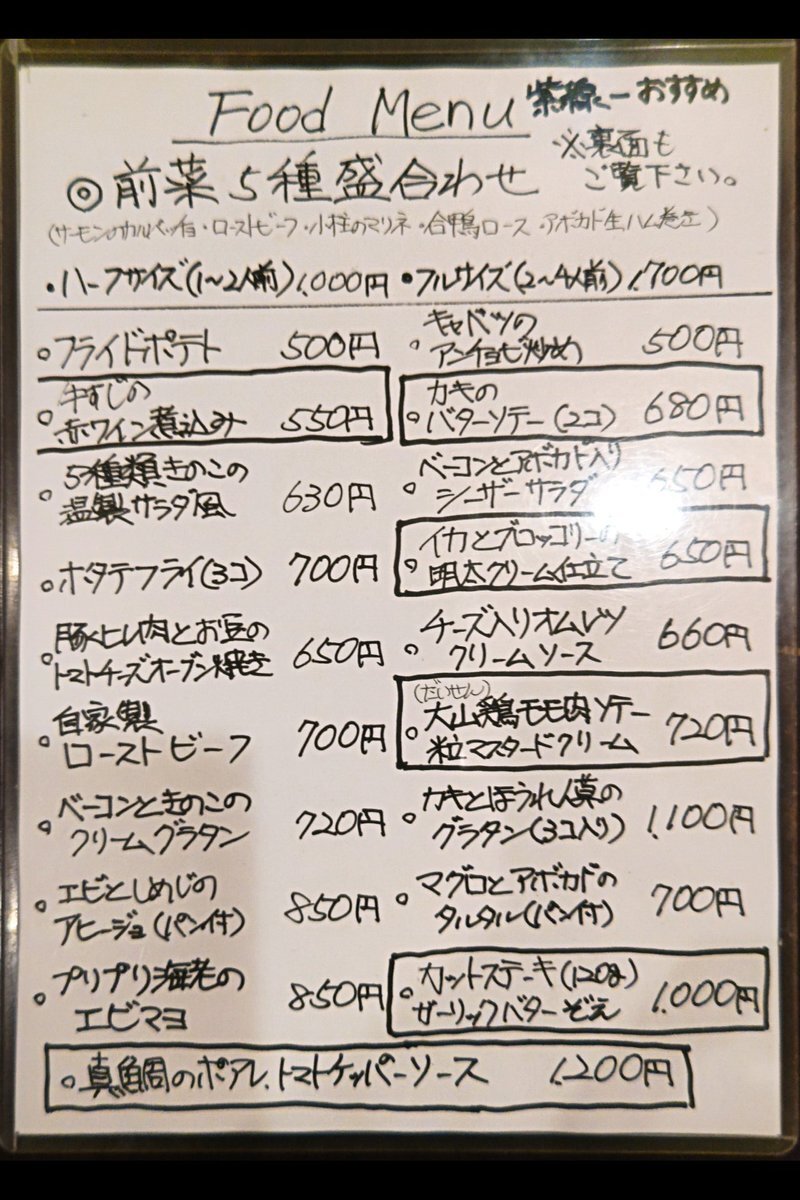 Food Menu
紫線←おすすめ
※裏面も
ご覧下さい。
◎前菜5種盛合わせ
(サーモンのカルパッチョ・ローストビーフ・小柱のマリネ・合鴨ロース・アボカド生ハム巻き)
・ハーフサイズ(1〜2人前)1,000円 ・フルサイズ(2〜4人前)1,700円
○フライドポテト 500円
○牛すじの
赤ワイン煮込み 550円
○5種類きのこの
温製サラダ風 630円
○ホタテフライ(3コ) 700円
○豚ヒレ肉とお豆の
トマトチーズオーブン焼き 650円
○自家製
ローストビーフ 700円
○ベーコンときのこの
クリームグラタン 720円
○エビとしめじの
アヒージョ(パン付) 850円
○プリプリ海老の
エビマヨ 850円
○キャベツの
アンチョビ炒め 500円
○カキの
バターソテー(2コ) 680円
○ベーコンとアボカド入り
シーザーサラダ 650円
○イカとブロッコリーの
明太クリーム仕立て 650円
○チーズ入りオムレツ
クリームソース 660円
(だいせん)
○大山鶏モモ肉ソテー
粒マスタードクリーム 720円
○カキとほうれん草の
グラタン(3コ入り) 1,100円
○マグロとアボカドの
タルタル(パン付) 700円
○カットステーキ(120g)
ガーリックバターぞえ 1,000円
○真鯛のポアレ、トマトケッパーソース 1,200円